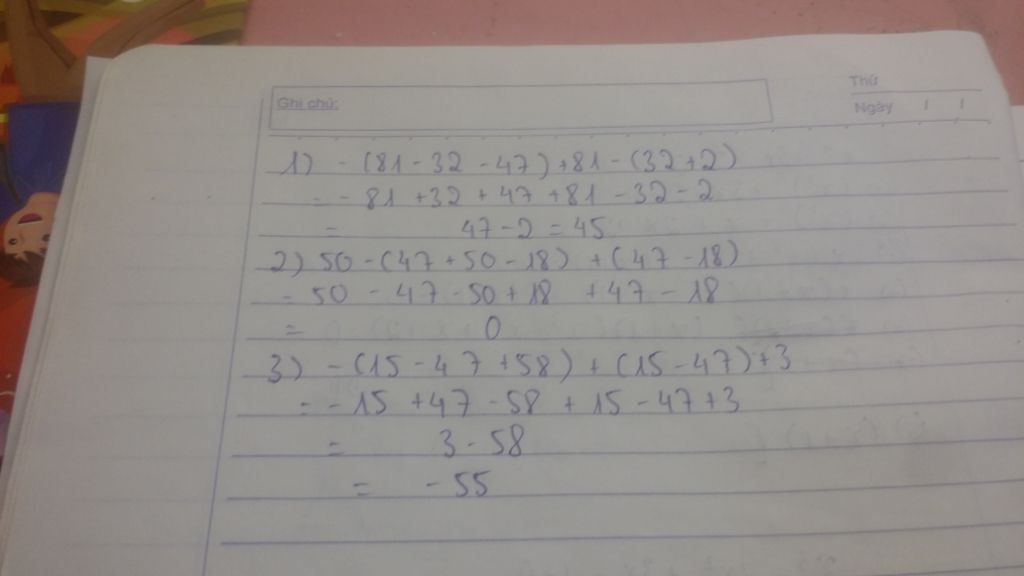 Thứ
Ghi chú:
Ngày / /
1) - (81 - 32 - 47) + 81 - (32 + 2)
= - 81 + 32 + 47 + 81 - 32 - 2
= 47 - 2 = 45
2) 50 - (47 + 50 - 18) + (47 - 18)
= 50 - 47 - 50 + 18 + 47 - 18
= 0
3) - (15 - 47 + 58) + (15 - 47) + 3
= - 15 + 47 - 58 + 15 - 47 + 3
= 3 - 58
= - 55